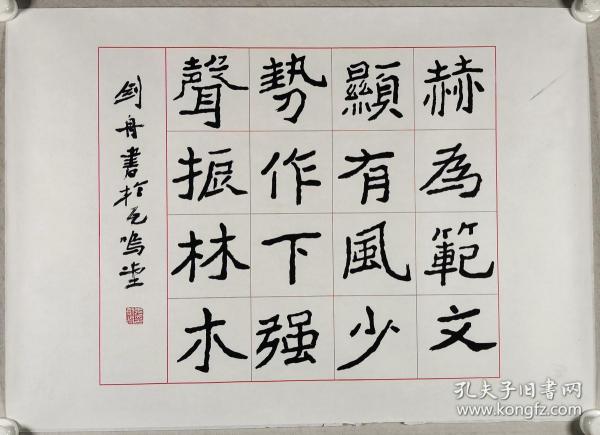 赫為範文
顯有風少
勢作下强
聲振林木
剑舟書於瓦鳴堂
孔夫子旧書网
www.kongfz.com